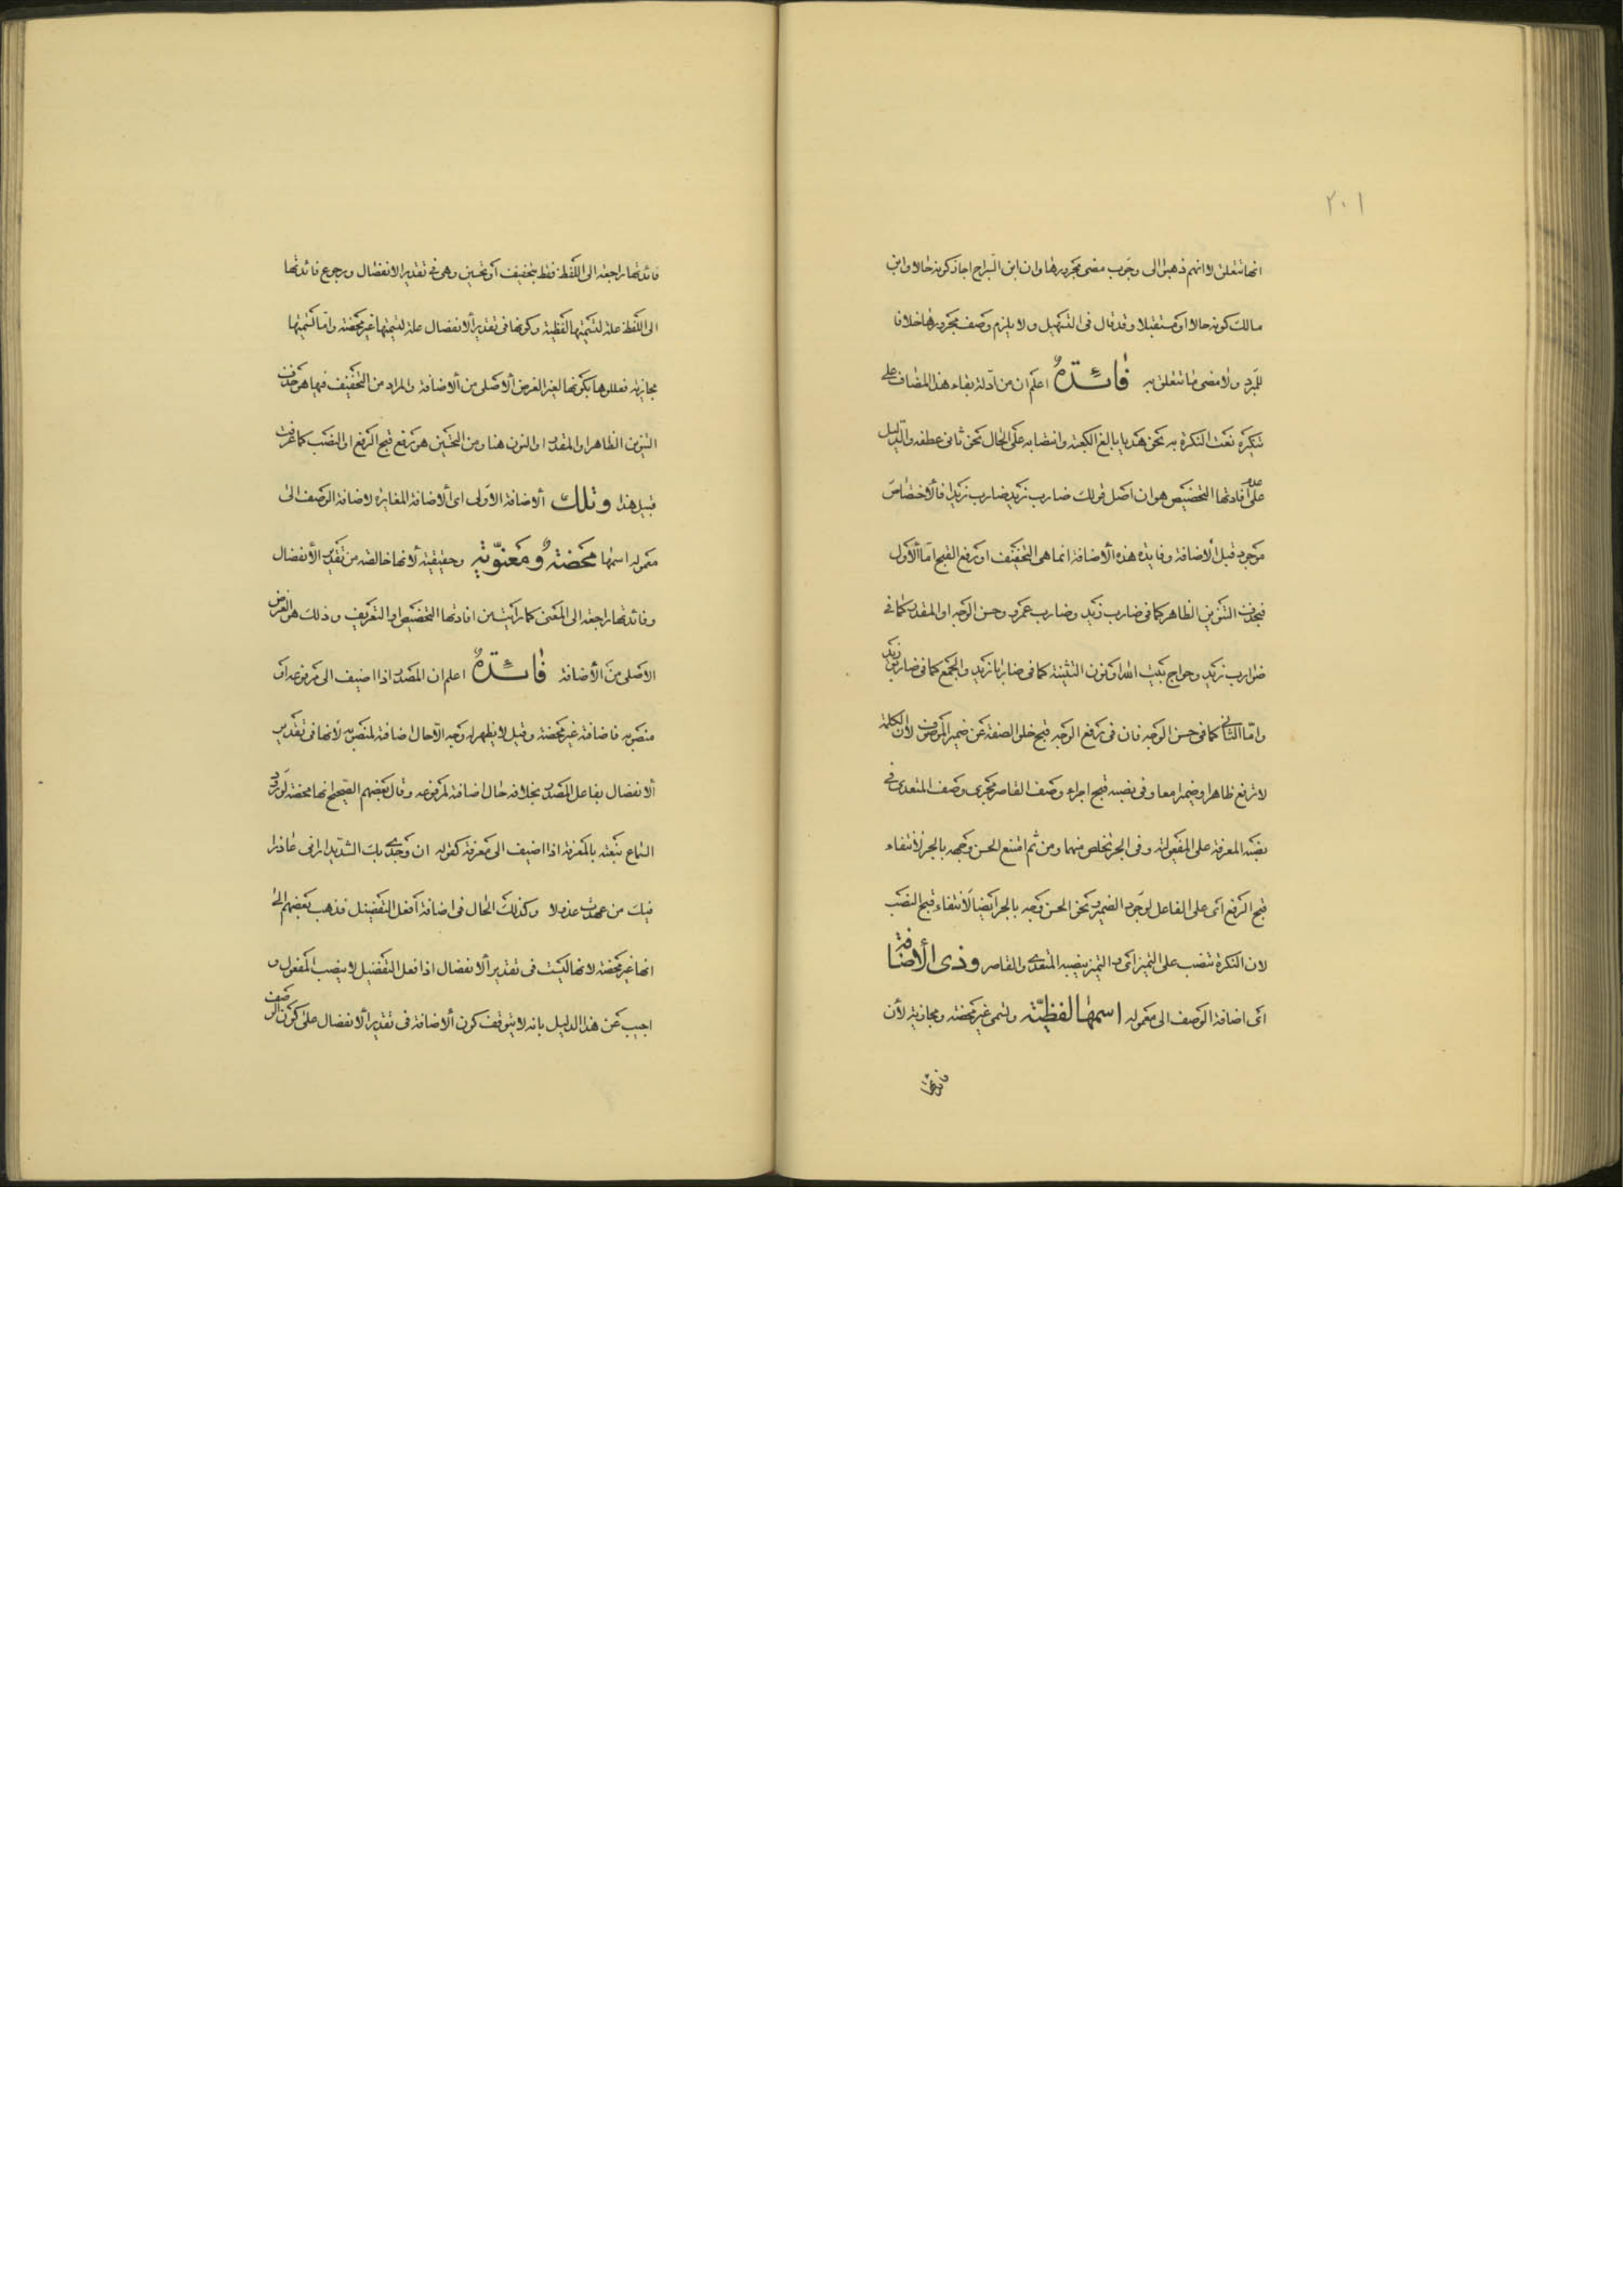 ٢٠١
انها تتعلق لا انهم ذهبوا الى وجوب مضى مجرورها وان ابن السراج اجاز كونه حالا وابن
مالك كونه حالا او مستقبلا وقد قال فى التسهيل ولا يلزم وصف مجرورها خلافا
للمبرد ولا مضى ما تتعلق به فائدة اعلم ان من ادلة بقاء هذا المضاف على
تنكيره نعت النكرة به نحو هديا بالغ الكعبة وانتصابه على الحال نحو ثانى عطفه والدليل
على عدم افادتها التخصيص هو ان اصل قولك ضارب زيد ضارب زيدا فالاختصاص
موجود قبل الاضافة وفايده هذه الاضافة انما هى التخفيف او رفع القبح اما الاول
فبحذف التنوين الظاهر كما فى ضارب زيد وضارب عمرو وحسن الوجه او المقدر كما فى
ضوارب زيد وحواج بيت الله او نون التثنية كما فى ضاربا زيد والجمع كما فى ضاربو زيد
واما الثانى كما فى حسن الوجه فان فى رفع الوجه قبح خلو الصفة عن ضمير الموصوف لان الكلمة
لا ترفع ظاهرا وضميرا معا وفى نصبه قبح اجراء وصف القاصر مجرى وصف المتعدى فى
نصبه المعرفة على المفعولية وفى الجر تخلص منهما ومن ثم امتنع الحسن وجهه بالجر لانتفاء
قبح الرفع اى على الفاعل لوجود الضمير ونحو الحسن وجه بالجر ايضا لانتفاء قبح النصب
لان النكرة تنصب على التميز اى و التميز ينصبه المتعدى والقاصر وذى الاضافة
اى اضافة الوصف الى معموله اسمها لفظية وتسمى غير محضة ومجازية لأن
فائدتها
فائدتها راجعة الى اللفظ فقط بتخفيف او تحسين وهى فى تقدير الانفصال ورجوع فائدتها
الى اللفظ علة لتسميتها لفظية وكونها فى تقدير الانفصال علة لتسميتها غير محضة واما تسميتها
مجازية فعللوها بكونها لغير الغرض الاصلى من الاضافة والمراد من التخفيف فيها هو حذف
التنوين الظاهر او المقدر او النون هنا ومن التحسين هو رفع قبح الرفع او النصب كما عرفت
قبيل هذا وتلك الاضافة الاولى اى الاضافة المغايرة لاضافة الوصف الى
معموله اسمها محضة ومعنوية وحقيقية لأنها خالصة من تقدير الأنفصال
وفائدتها راجعة الى المعنى كما رأيت من افادتها التخصيص او التعريف وذلك هو الغرض
الاصلى من الأضافة فائدة اعلم ان المصدر اذا اضيف الى مرفوعه او
منصوبه فاضافة غير محضة وقيل لا يظهر له وجه الا حال اضافة لمنصوبه لأنها فى تقدير
الانفصال بفاعل المصدر بخلافه حال اضافة لمرفوعه وقال بعضهم الصحيح انها محضة لورود
السماع بنعته بالمعرفة اذا اضيف الى معرفة كقوله ان وجدى بك الشديد ارانى عاذرا
فيك من عهدت عذولا وكذلك الحال فى اضافة افعل التفضيل فذهب بعضهم الى
انها غير محضة لانها ليست فى تقدير الانفصال اذ افعل التفضيل لا ينصب المفعول و
اجيب عن هذا الدليل بانه لا يتوقف كون الاضافة فى تقدير الانفصال على كون الوصف